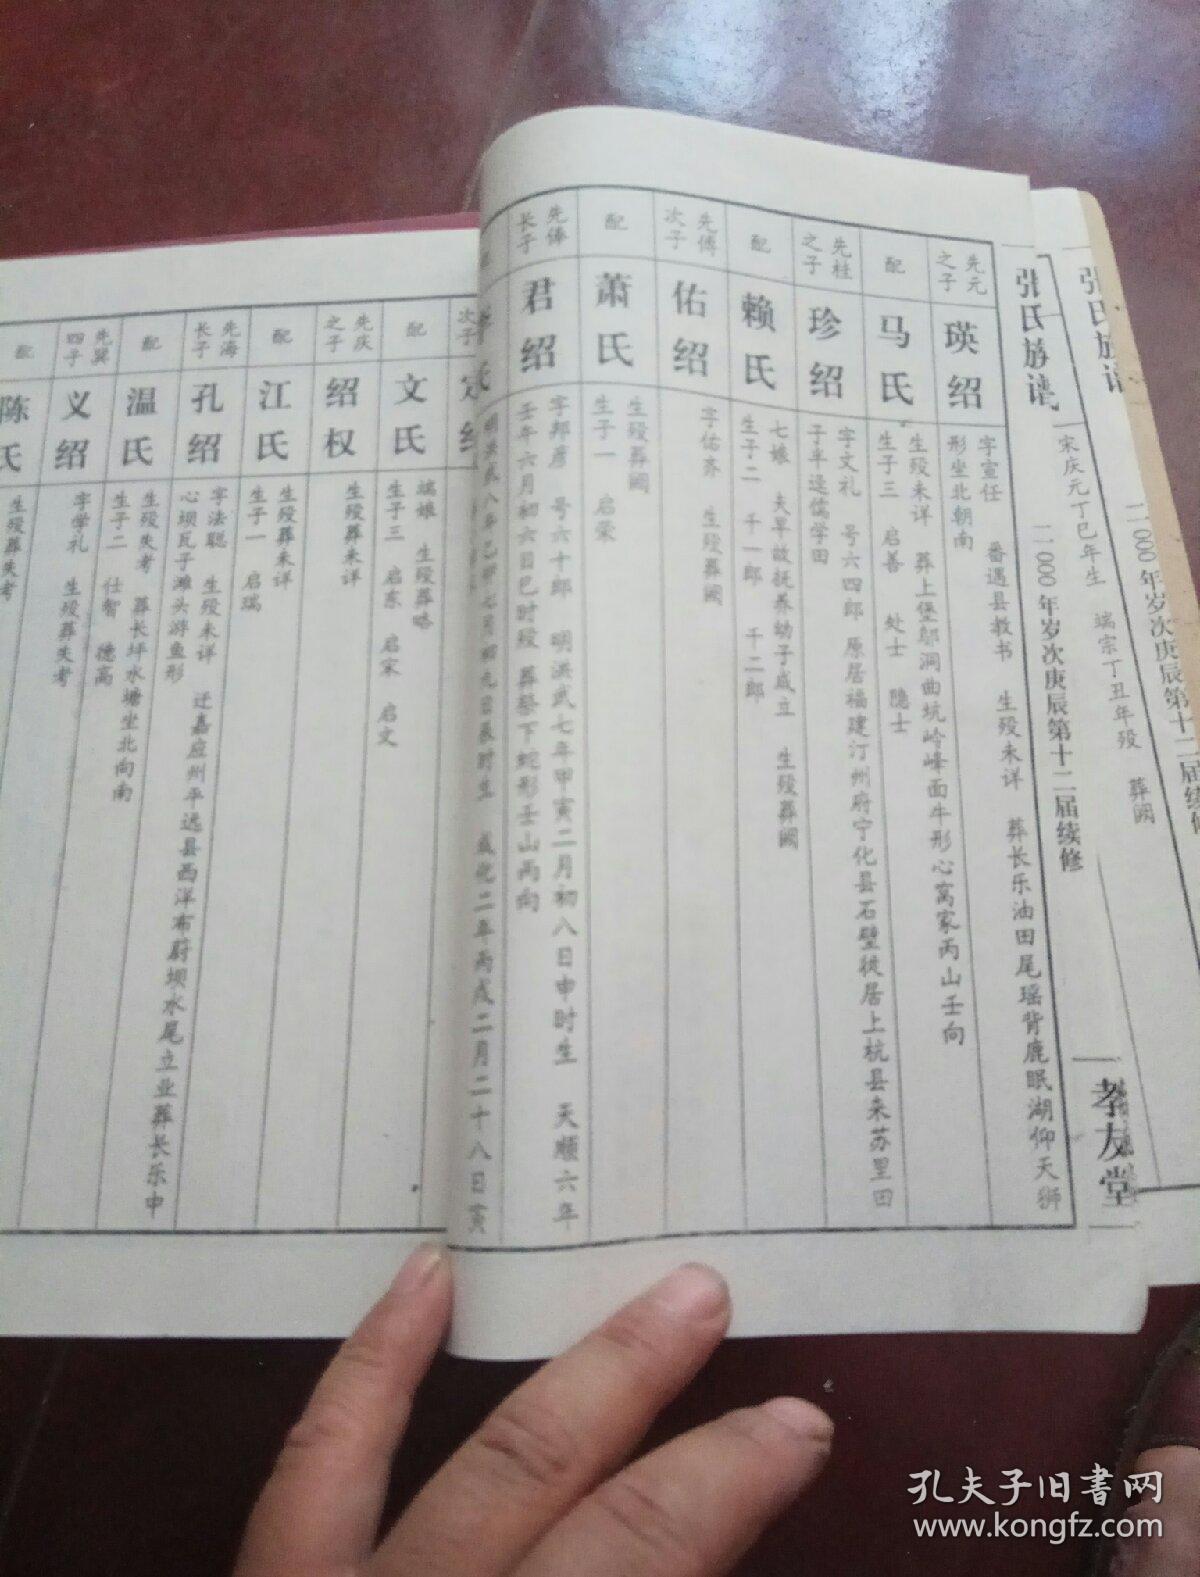 张氏族谱
二000年岁次庚辰第十二届续修
宋庆元丁巳年生 端宗丁丑年殁 葬阙
张氏族谱
二000年岁次庚辰第十二届续修
孝友堂
先元
之子
瑛绍
字宣任 番遇县教书 生殁未详 葬长乐油田尾瑶背鹿眠湖仰天狮
形坐北朝南
配
马氏
生殁未详 葬上堡邬洞曲坑岭峰面牛形心窝家丙山壬向
生子三 启善 处士 隐士
先桂
之子
珍绍
字文礼 号六四郎 原居福建汀州府宁化县石壁徙居上杭县来苏里田
子半迳儒学田
配
赖氏
七娘 夫早故抚养幼子成立 生殁葬阙
生子二 千一郎 千二郎
先傅
次子
佑绍
字佑齐 生殁葬阙
配
萧氏
生殁葬阙
生子一 启荣
先俸
长子
君绍
字邦彦 号六十郎 明洪武七年甲寅二月初八日申时生 天顺六年
壬午六月初六日巳时殁 葬祭下蛇形壬山丙向
氏
成化二年丙戌二月二十八日寅
次子
配
文氏
端娘 生殁葬略
生子三 启东 启宋 启文
先庆
之子
绍权
生殁葬未详
配
江氏
生殁葬未详
生子一 启瑞
先海
长子
孔绍
字法聪 生殁未详 迁嘉应州平远县西洋布蔚坝水尾立业葬长乐中
心坝瓦子滩头游鱼形
配
温氏
生殁失考 葬长坪水塘坐北向南
生子二 仕智 德高
先巽
四子
义绍
字学礼 生殁葬失考
配
陈氏
生殁葬失考
孔夫子旧书网
www.kongfz.com